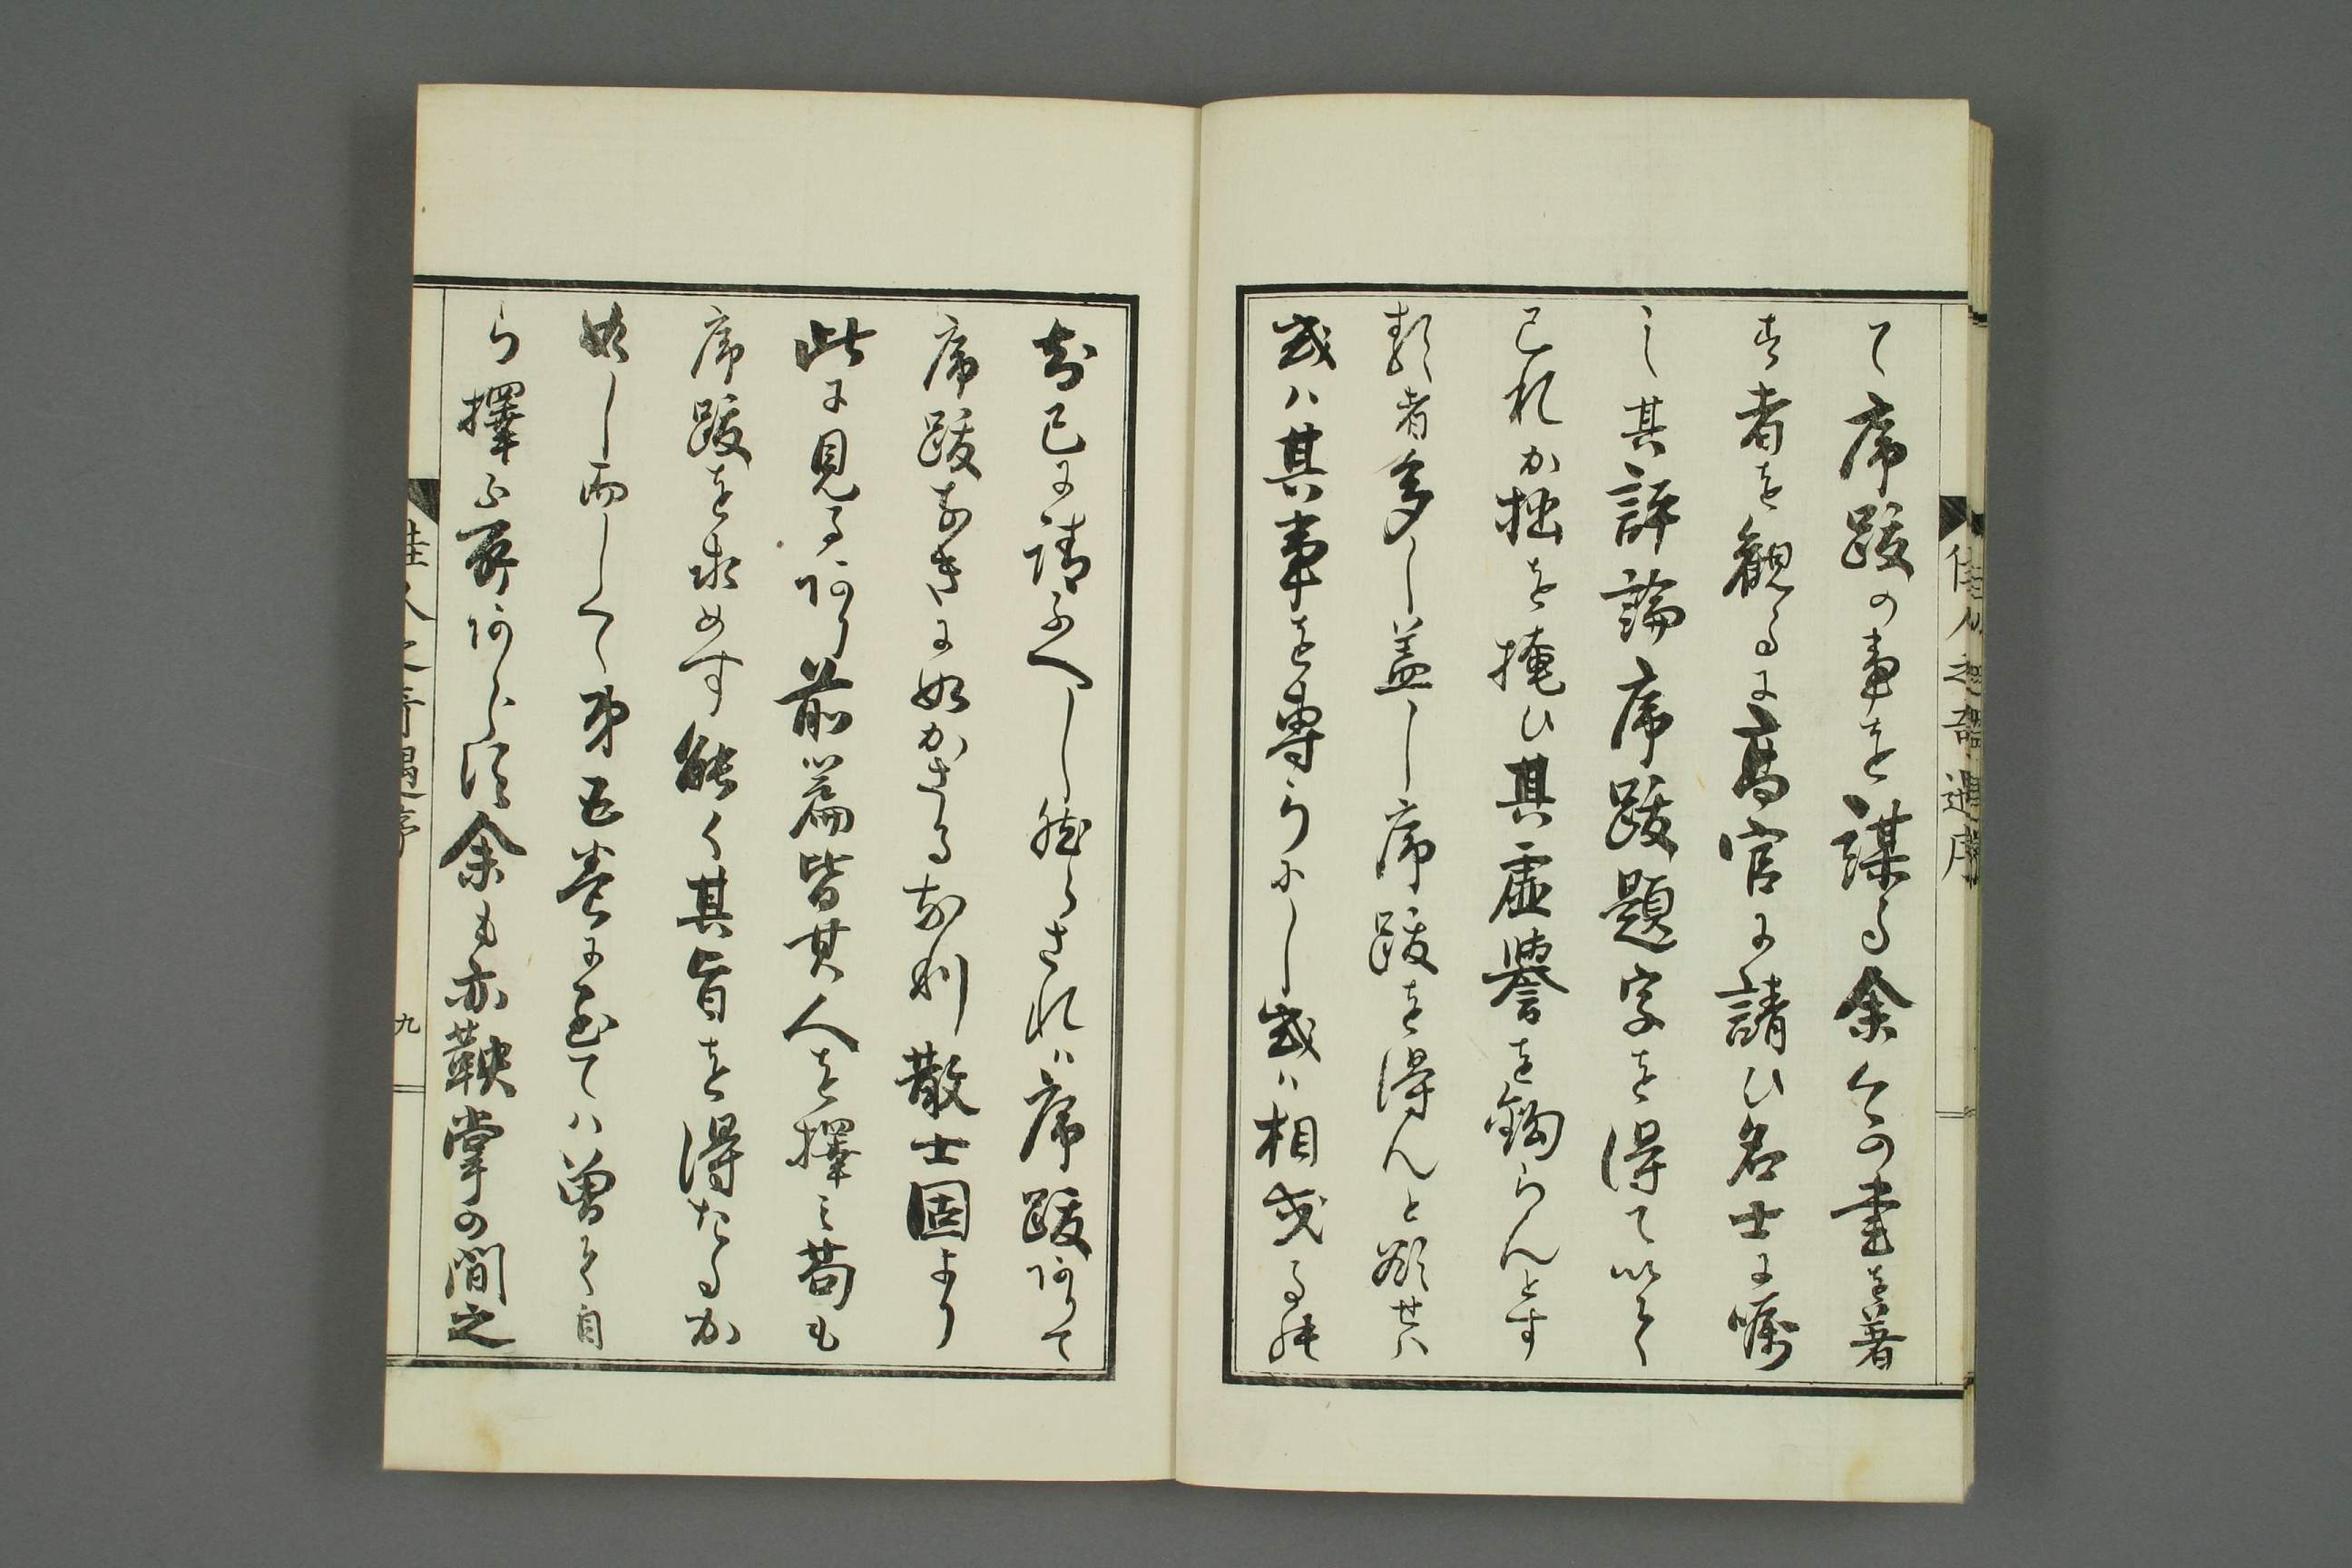 て序跋の事を謀る余今の書を著
す者を観るに高官に請ひ名士に嘱
し其評論序跋題字を得て以て
己れか拙を掩ひ其虚誉を鈎らんとす
類者多し盖し序跋を得んと欲せハ
或ハ其事を専らにし或ハ相交る
知己に請ふへし然らされハ序跋ありて
序跋なきに如かさるなり散士固より
此に見るあり前篇皆其人を擇み苟も
序跋を求めす能く其旨を得たるか
如し而して第五巻に至てハ曽て自
ら擇ふ所あらす余も亦鞅掌の間之
佳人之奇遇序
佳人之奇遇序
九